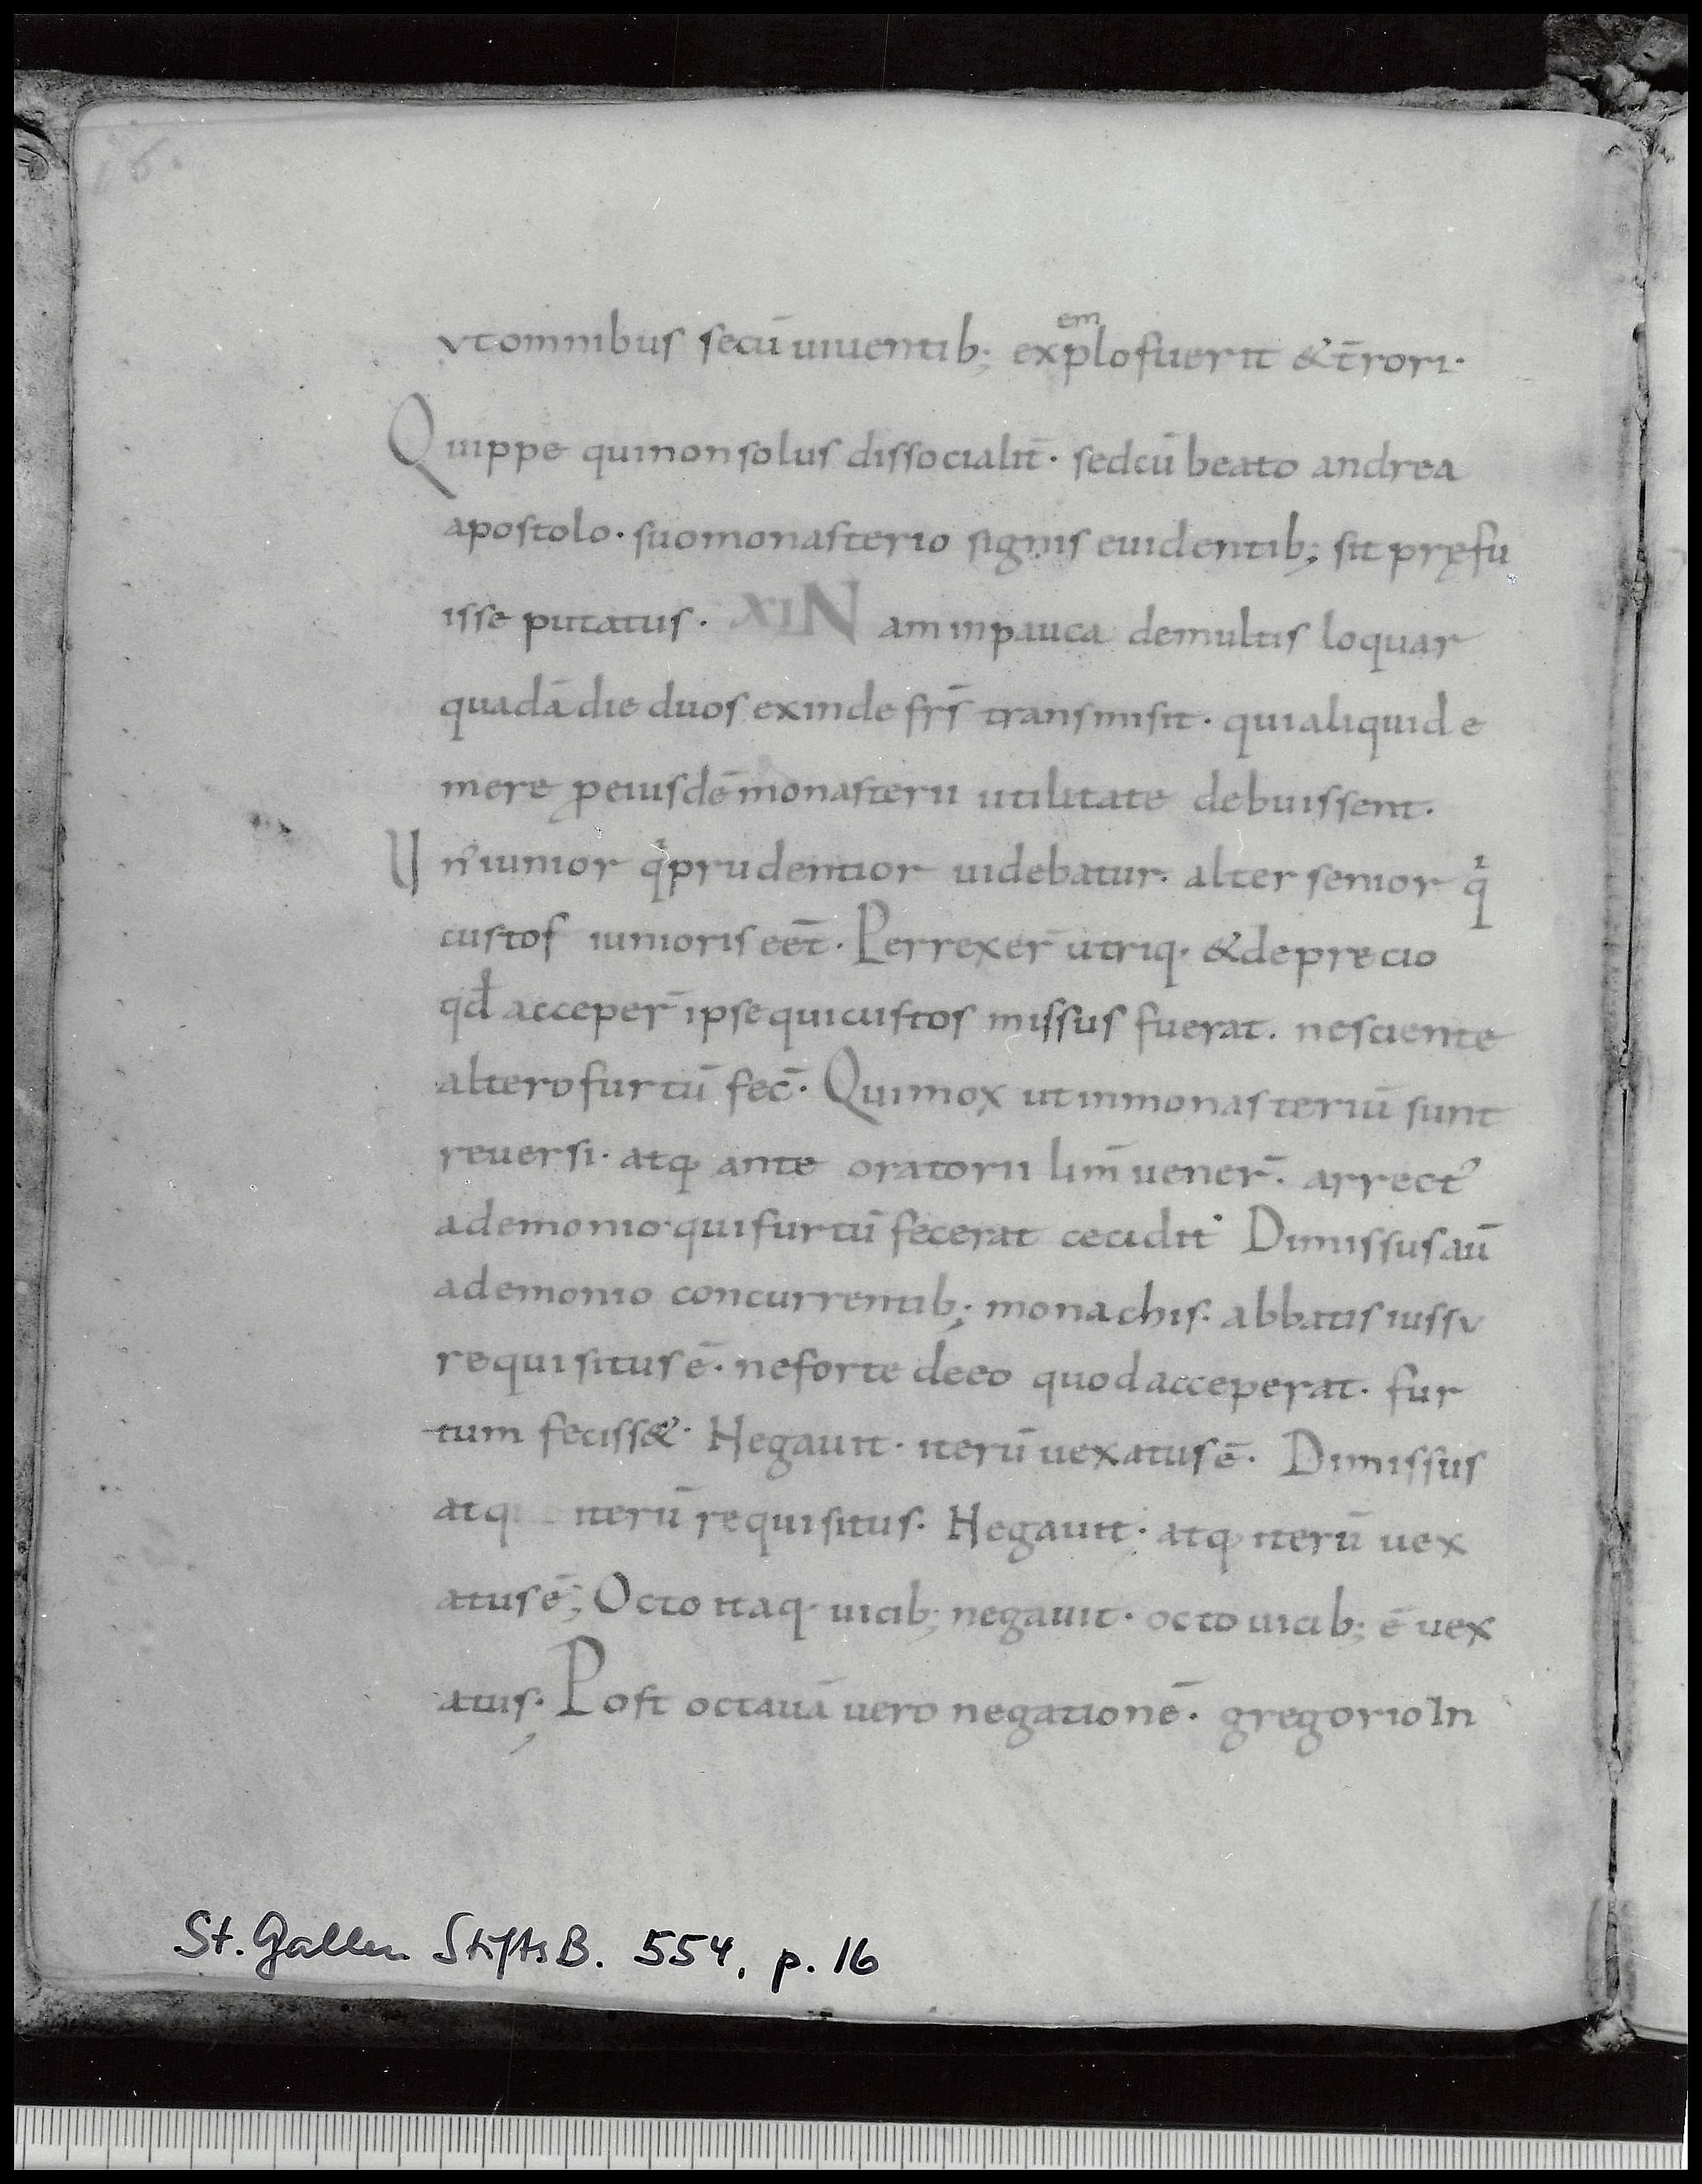 16.
vtomnibus secū uiuentib; exemplo fuerit & t̄rori·
Quippe quinonsolus dissocialit̄· sedcū beato andrea
apostolo· suomonasterio signis euidentib; sit pręfu
isse putatus· XI Naminpauca demultis loquar
quadā die duos exinde frs̄ transmisit· quialiquid e
mere ꝓeiusdē monasterii utilitate debuissent·
Unꝰ iunior qͥ prudentior uidebatur· alter senior qͥ
custos iunioris eēt· Perrexer̄ utriq· & deprecio
qđ acceper̄ ipse quicustos missus fuerat· nesciente
altero furtū fec̄· Quimox utinmonasteriū sunt
reuersi· atq· ante oratorii lim̄ uener̄· arrectꝰ
ademonio· quifurtū fecerat cecidit· Dimissus aū
ademonio concurrentib; monachis· abbatis iussv
requisitus ē· neforte deeo quodacceperat· fur
tum feciss&· Negauit· iterū uexatus ē· Dimissus
atq iterū requisitus· Negauit; atq· iterū uex
atus ē; Octo itaq· uicib; negauit· octo uicib; ē uex
atus· Post octauā uero negationē· gregorio In
St. Gallen StiftsB. 554, p. 16